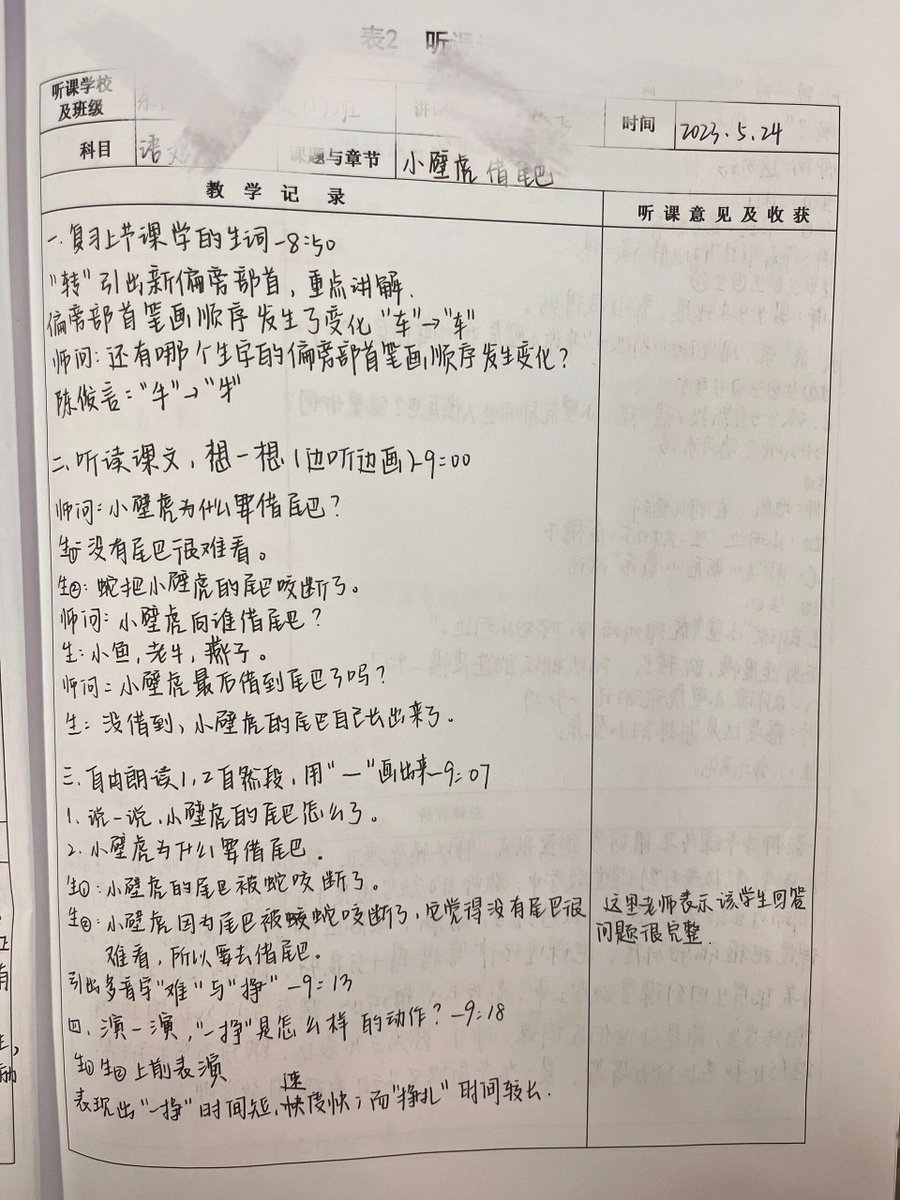 表2 听课
听课学校及班级 班 时间 2023.5.24
科目 语文 课题与章节 小壁虎借尾巴
教学记录 听课意见及收获
一.复习上节课学的生词-8:50
"转"引出新偏旁部首，重点讲解.
偏旁部首笔画顺序发生了变化"车"→"车"
师问:还有哪个生字的偏旁部首笔画顺序发生变化?
陈俊言:"牛"→"牜"
二.听读课文，想一想(边听边画)-9:00
师问:小壁虎为什么要借尾巴?
生①:没有尾巴很难看。
生②:蛇把小壁虎的尾巴咬断了。
师问:小壁虎向谁借尾巴?
生:小鱼,老牛,燕子。
师问:小壁虎最后借到尾巴了吗?
生:没借到,小壁虎的尾巴自己长出来了。
三.自由朗读1,2自然段,用"一"画出来-9:07
1.说一说,小壁虎的尾巴怎么了。
2.小壁虎为什么要借尾巴。
生①:小壁虎的尾巴被蛇咬断了。
生②:小壁虎因为尾巴被蛇咬断了,它觉得没有尾巴很
难看,所以要去借尾巴。
这里老师表示该学生回答
问题很完整.
引出多音字"难"与"挣"-9:13
四.演一演,"一挣"是怎么样的动作?-9:18
生①生②上前表演
表现出"一挣"时间短,速度快;而"挣扎"时间较长.